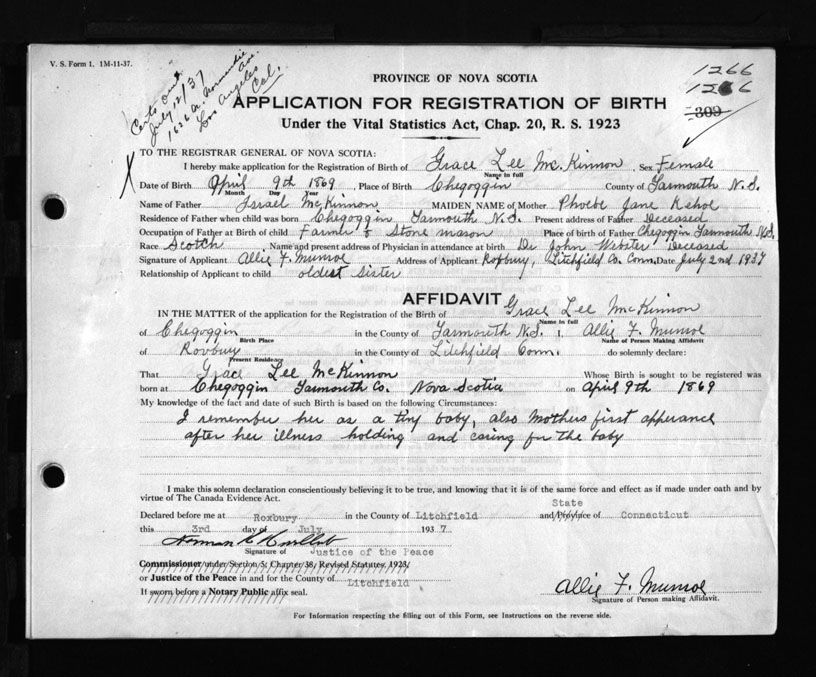 V. S. Form 1. 1M-11-37.
Certs sent
July 12/37
1626 N. Normandie
Ave.
Los Angeles
Cal.
1266
1266
309
PROVINCE OF NOVA SCOTIA
APPLICATION FOR REGISTRATION OF BIRTH
Under the Vital Statistics Act, Chap. 20, R. S. 1923
TO THE REGISTRAR GENERAL OF NOVA SCOTIA:
I hereby make application for the Registration of Birth of Grace Lee Mc.Kinnon, Sex Female
Name in full
Date of Birth April 9th 1869, Place of Birth Chegoggin County of Yarmouth N.S.
Month Day Year
Name of Father Israel McKinnon MAIDEN NAME of Mother Phoebe Jane Kehoe
Residence of Father when child was born Chegoggin Yarmouth N.S. Present address of Father Deceased
Occupation of Father at Birth of child Farmer & Stone mason Place of birth of Father Chegoggin Yarmouth N.S.
Race Scotch Name and present address of Physician in attendance at birth Dr John Webster Deceased
Signature of Applicant Allie F. Munroe Address of Applicant Roxbury, Litchfield Co. Conn. Date July 2nd 1937
Relationship of Applicant to child oldest sister
AFFIDAVIT
IN THE MATTER of the application for the Registration of the Birth of Grace Lee McKinnon
Name in full
of Chegoggin in the County of Yarmouth N.S. I, Allie F. Munroe
Birth Place Name of Person Making Affidavit
of Roxbury in the County of Litchfield Conn. do solemnly declare:
Present Residence
That Grace Lee McKinnon Whose Birth is sought to be registered was
born at Chegoggin Yarmouth Co. Nova Scotia on April 9th 1869
My knowledge of the fact and date of such Birth is based on the following Circumstances:
I remember her as a tiny baby, also Mothers first apperance
after her illness holding and caring for the baby
I make this solemn declaration conscientiously believing it to be true, and knowing that it is of the same force and effect as if made under oath and by
virtue of The Canada Evidence Act.
State
Declared before me at Roxbury in the County of Litchfield and/Province of Connecticut
this 3rd day of July 1937
Signature of Justice of the Peace
Commissioner under Section 5, Chapter 38, Revised Statutes, 1923/
or Justice of the Peace in and for the County of Litchfield
If sworn before a Notary Public affix seal.
Allie F. Munroe
Signature of Person making Affidavit.
For Information respecting the filling out of this Form, see Instructions on the reverse side.